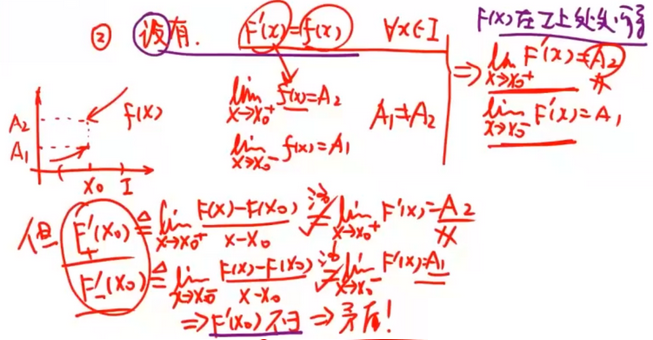 ② 设有. F'(x)=f(x) ∀x∈I
F(x)在I上处处可导
lim x→x₀⁺ f(x)=A₂
lim x→x₀⁻ f(x)=A₁
A₁≠A₂
⇒ lim x→x₀⁺ F'(x)=A₂
lim x→x₀⁻ F'(x)=A₁
A₂
A₁
f(x)
x₀ I
但 F'₊(x₀) ≜ lim x→x₀⁺ F(x)-F(x₀) / x-x₀ 洛 = lim x→x₀⁺ F'(x)=A₂
F'₋(x₀) ≜ lim x→x₀⁻ F(x)-F(x₀) / x-x₀ 洛 = lim x→x₀⁻ F'(x)=A₁
⇒ F'(x₀) 不∃ ⇒ 矛盾!